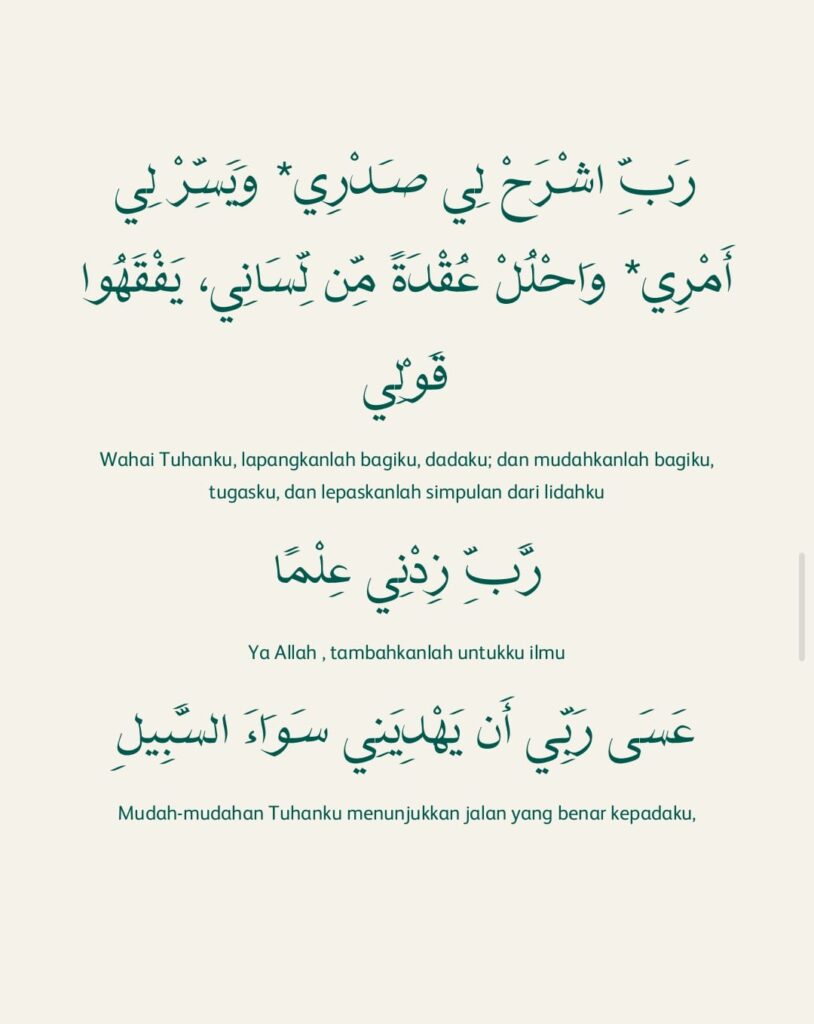 رَبِّ اشْرَحْ لِي صَدْرِي* وَيَسِّرْ لِي
أَمْرِي* وَاحْلُلْ عُقْدَةً مِّن لِّسَانِي، يَفْقَهُوا
قَوْلِي
Wahai Tuhanku, lapangkanlah bagiku, dadaku; dan mudahkanlah bagiku,
tugasku, dan lepaskanlah simpulan dari lidahku
رَّبِّ زِدْنِي عِلْمًا
Ya Allah , tambahkanlah untukku ilmu
عَسَى رَبِّي أَن يَهْدِيَنِي سَوَاءَ السَّبِيلِ
Mudah-mudahan Tuhanku menunjukkan jalan yang benar kepadaku,